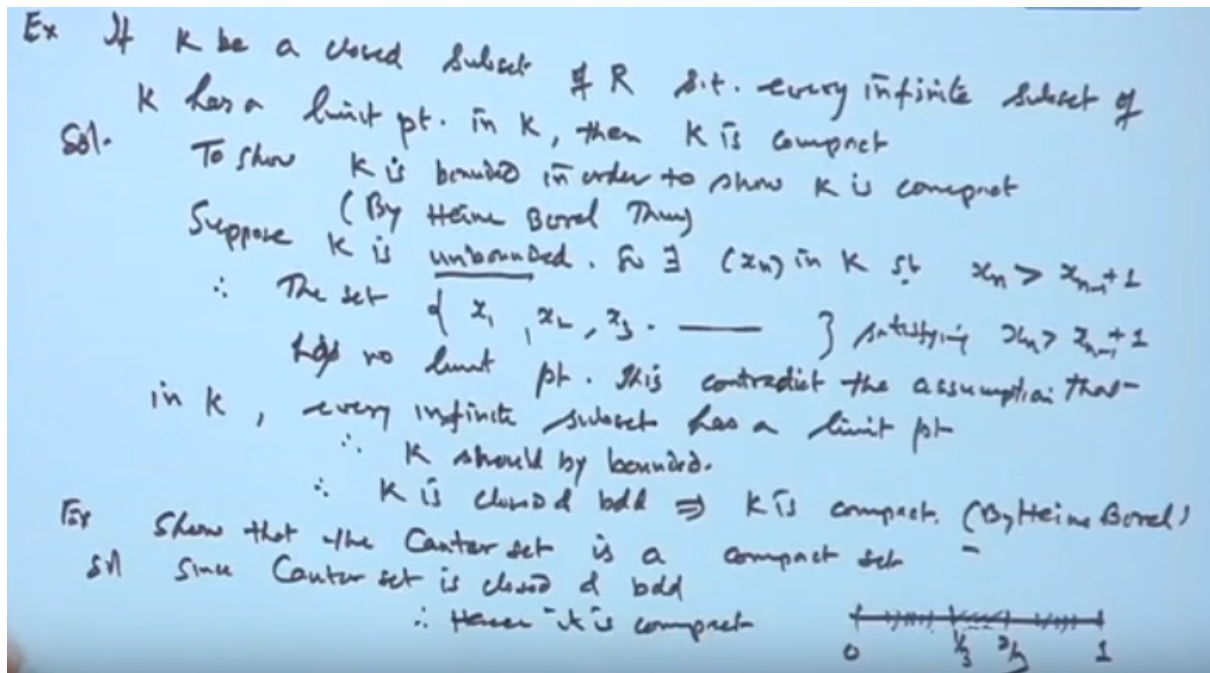 Ex If K be a closed subset of R s.t. every infinite subset of
K has a limit pt. in K, then K is compact
Sol. To show K is bounded in order to show K is compact
(By Heine Borel Thm)
Suppose K is unbounded. So ∃ (xn) in K st xn > xn-1 + 1
∴ The set { x1, x2, x3. —— } satisfying xn > xn-1 + 1
has no limit pt. This contradict the assumption that
in K, every infinite subset has a limit pt
∴ K should by bounded.
∴ K is closed & bdd ⇒ K is compact. (By Heine Borel)
Ex Show that the Cantor set is a compact set
Sol Since Cantor set is closed & bdd
∴ Hence it is compact
0 1/3 2/3 1